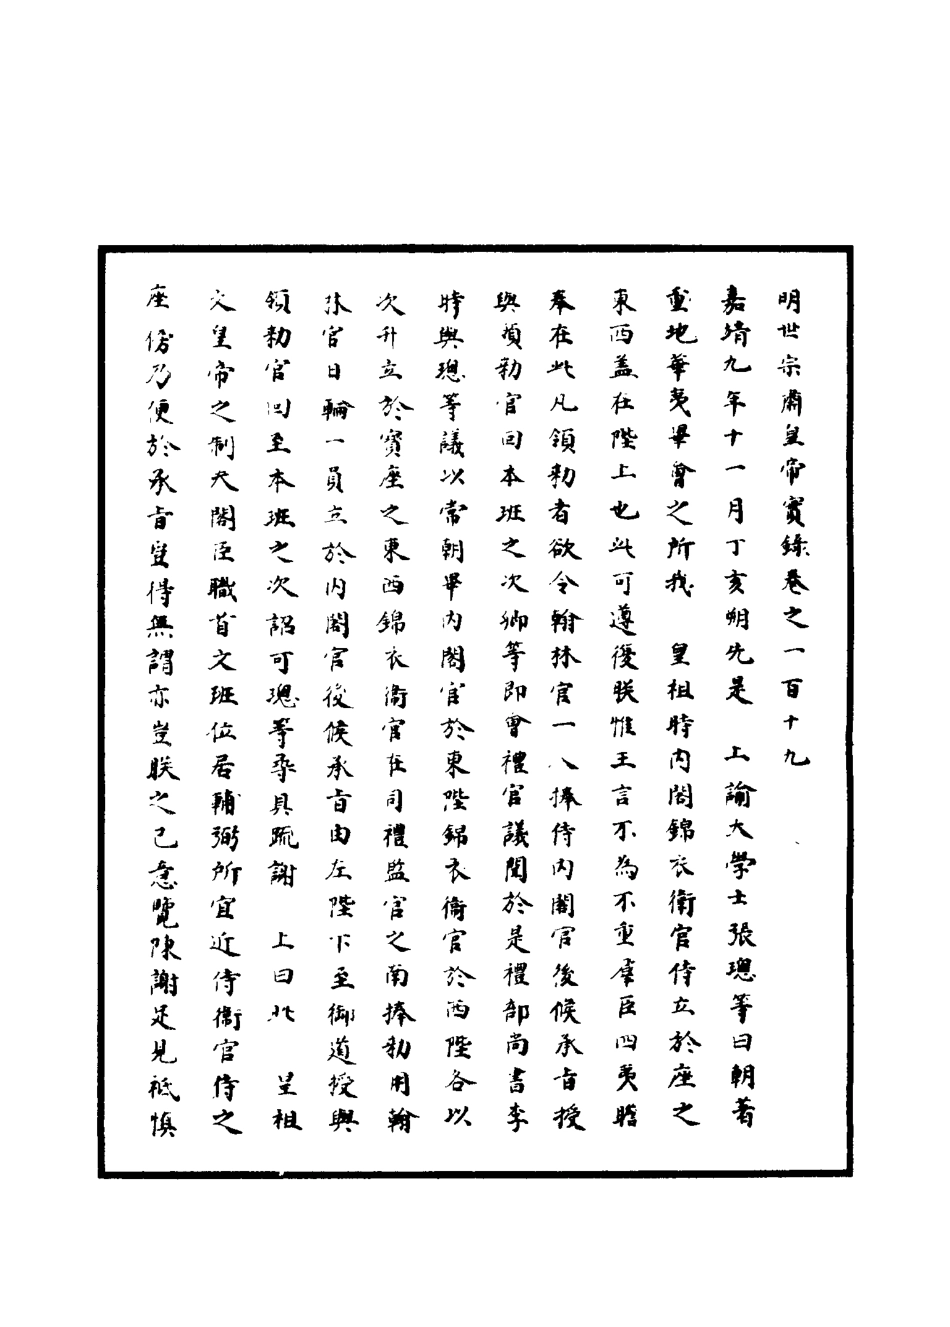 明世宗肅皇帝實錄卷之一百十九
嘉靖九年十一月丁亥朔先是　上諭大學士張璁等曰朝著
重地華夷畢會之所我　皇祖時內閣錦衣衛官侍立於座之
東西蓋在陛上也此可遵復朕惟王言不為不重羣臣四夷瞻
奉在此凡領勑者欲令翰林官一人捧侍內閣官後候承旨授
與領勑官回本班之次卿等即會禮官議聞於是禮部尚書李
時與璁等議以常朝畢內閣官於東陛錦衣衛官於西陛各以
次升立於寶座之東西錦衣衛官在司禮監官之南捧勑用翰
林官日輪一員立於內閣官後候承旨由左陛下至御道授與
領勑官回至本班之次詔可璁等尋具疏謝　上曰此　皇祖
文皇帝之制夫閣臣職首文班位居輔弼所宜近侍衛官侍之
座傍乃便於承旨豈得無謂亦豈朕之己意覽陳謝足見祗慎